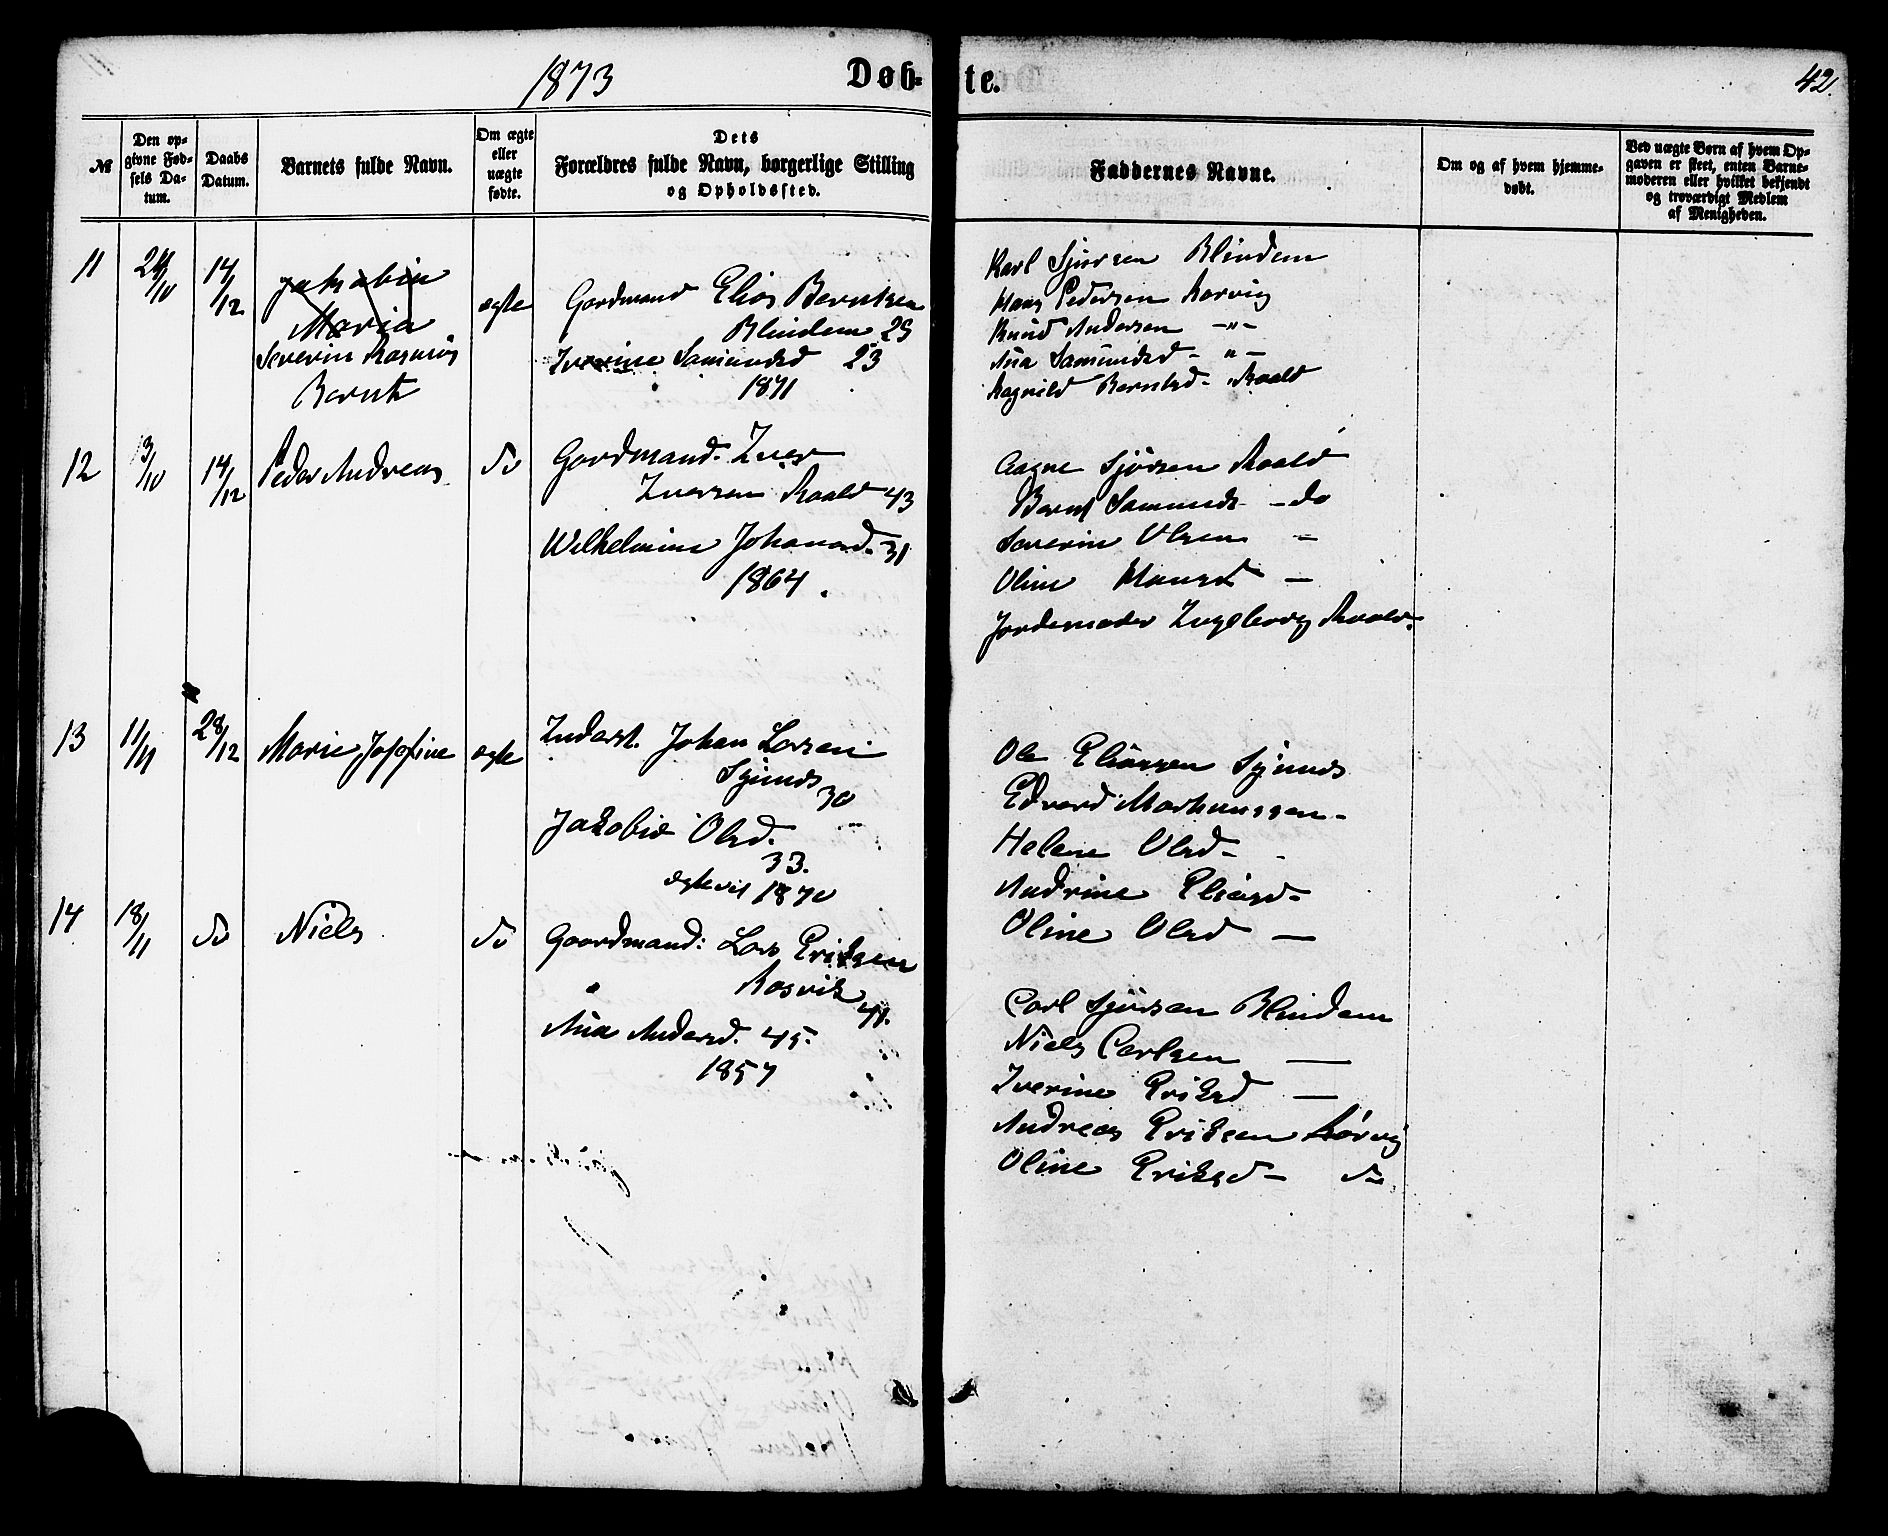 1873
Døb-
te.
42.
№
Den op-
givne Fød-
sels Da-
tum.
Daabs
Datum.
Barnets fulde Navn.
Om ægte
eller
uægte
fødte.
Dets
Forældres fulde Navn, borgerlige Stilling
og Opholdssted.
Faddernes Navne.
Om og af hvem hjemme-
døbt.
Ved uægte Børn af hvem Op-
gaven er skeet, enten Barne-
moderen eller hvilket bekjendt
og troværdigt Medlem
af Menigheden.
11
/10
14/12
Jakobin
Maria
Severin Rasmus
Bernt
ægte
Gordmand Elias Berntsen
Blindem 29
Iverine Samundsd 23
1871
Karl Sjursen Blindem
Hans Pedersen Rorvig
Knud Andersen -"-
Ana Samundsd - " -
Ragnild Berntsd - Roald
12
13/10
14/12
Peder Andreas
do
Gordmand. Iver
Iversen Roald 43
Wilhelmine Johansd. 31
1864.
Aagne Sjørsen Roald
Bernt Samunds - do
Severin Olsen -
Oline Hansd -
Jordemoder Ingeborg Roald.
13
11/11
28/12
Marie Josefine
ægte
Inderst. Johan Larsen
30
Jakobie Olsd.
33.
egteviet 1870
Ole Eliassen
Edvard Markussen -
Helene Olsd -
Andrine Eliasd -
Oline Olsd -
14
18/11
do
Niels
do
Gaardmand: Lars Eriksen
Rosvik
41.
Ana Andersd. 45.
1857
Carl Sjursen Blindem
Niels Carlsen -
Iverine Eriksd -
Andreas Eriksen Rørvig
Oline Eriksd - do